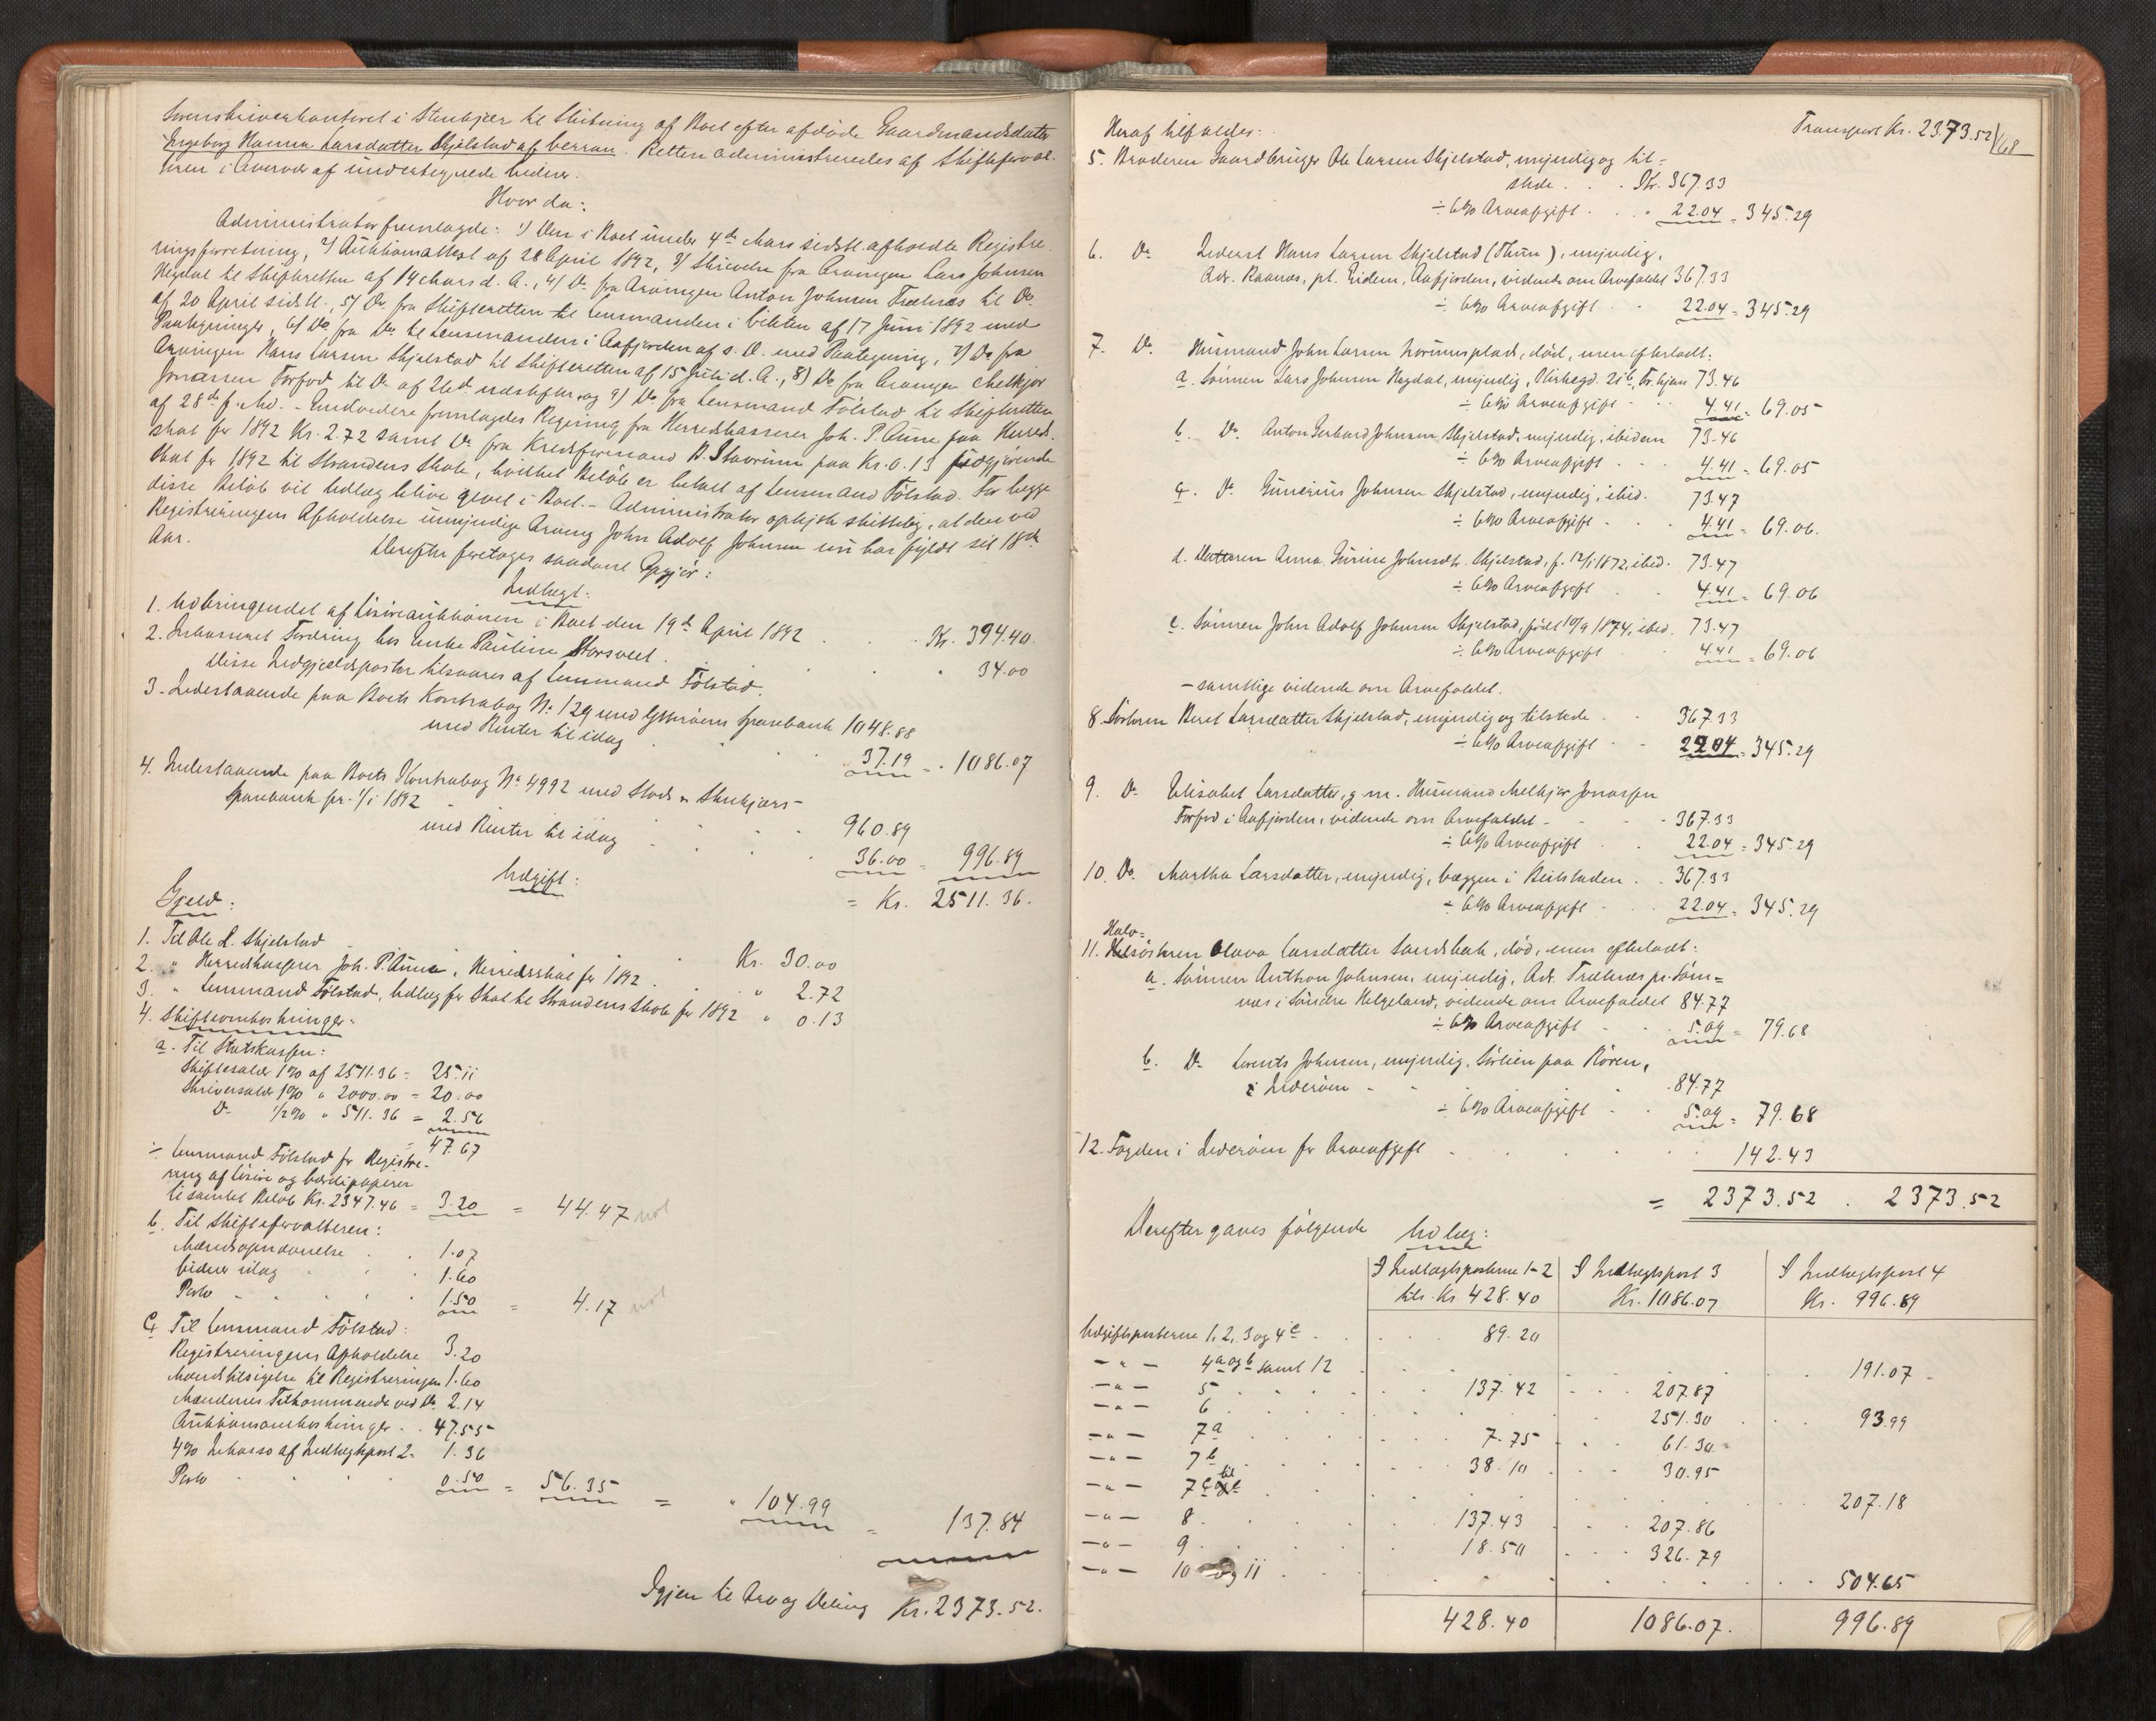 Sorenskriverkontoret i Stenkjær til Slutning af Boet efter afdøde Gaardmandsdatter
Ingeborg Hanna Larsdatter Skjelstad af Verran. Retten administreredes af Skifteforval-
teren i Overvær af undertegnede Vidner.
Hvor da:
Administrator fremlagde: 1) Den i Boet under 4de Mars sidstl. afholdte Registre-
ringsforretning, 2) Auktionsattest af 28 April 1892, 3) Skrivelse fra Arvingen Lars Johnsen
Hegdal til Skifteretten af 14 Mars d. A., 4) Do fra Arvingen Anton Johnsen Trælnæs til Do
af 20 April sidstl., 5) Do fra Skifteretten til Lensmanden i Vikten af 17 Juni 1892 med
Paategninger, 6) Do fra Do til Lensmanden i Aafjorden af s. D. med Paategning, 7) Do fra
Arvingen Hans Larsen Skjelstad til Skifteretten af 15 Juli d. A., 8) Do fra Arvingen Melkjør
Jonassen Forfod til Do af 26d næstefter, og 9) Do fra Lensmand Følstad til Skifteretten
af 28de f. Md. - Endvidere fremlagdes Regning fra Herredskasserer Joh. P. Aune paa Herreds-
skat for 1892 Kr. 2.72 samt Do fra Kredsformand B. Stavrum paa Kr. 0.13 udgjørende
Skat for 1892 til Strandens Skole, hvilket Beløb er betalt af Lensmand Følstad. For begge
disse Beløb vil Udlæg blive givet i Boet. - Administrator oplyste skiftelig, at den ved
Registreringens Afholdelse umyndige Arving John Adolf Johnsen nu har fyldt sit 18de
Aar.
Derefter foretoges saadant Opgjør:
Indtægt:
1. Udbringendet af Løsøreauktionen i Boet den 19de April 1892 . . . Kr. 394.40.
2. Inkasseret Fordring hos Enke Pauline Storsveet . . " 34.00
Disse Indgjældsposter tilsvares af Lensmand Følstad.
3. Indestaaende paa Boets Kontrabog No 129 med Ytterøens Sparebank 1048.88
med Renter til idag . . . 37.19 = . 1086.07
4. Indestaaende paa Boets Kontrabog No 4992 med Stods & Stenkjærs-
Sparebank pr. 1/1 1892 - 960.89
med Renter til idag . . . 36.00 = 996.89
= Kr. 2511.36.
Udgift:
Gjeld:
1. Til Ole L. Skjelstad . Kr. 30.00
2. " Herredskasserer Joh. P. Aune, Herredsskat for 1892 . " 2.72
3. " Lensmand Følstad, Udlæg for Skat til Strandens Skole for 1892 " 0.13
4. Skifteomkostninger:
a. Til Statskassen:
Skiftesalær 1% af 2511.36 = 25.11
Skriversalær 1% " 2000.00 = 20.00
Do 1/2% " 511.36 = 2.56
47.67
÷ Lensmand Følstad for Registre-
ring af Løsøre og Værdipapirer
til samlet Beløb Kr. 2347.46 = 3.20 = 44.47 not
b. Til Skifteforvalteren:
Mændsopnævnelse . . 1.07
Vidner idag . . 1.60
Porto - . . . 1.50 = 4.17 not
c. Til Lensmand Følstad:
Registreringens Afholdelse 3.20
Mændstilsigelse til Registreringen 1.60
Mændenes Tilkommende ved Do 2.14
Auktionsomkostninger . . 47.55
4% Inkasso af Indtægtspost 2. 1.36
Porto . . . . 0.50 = 56.35 = " 104.99 = 137.84
Igjen til Arv og Deling Kr. 2373.52.
Transport Kr. 2373.52
168
Heraf tilfalder:
5. Broderen Gaardbruger Ole Larsen Skjelstad, myndig og til-
stede . . . Kr. 367.33
÷ 6% Arveafgift . . . " 22.04 = 345.29
6. Do Inderst Hans Larsen Skjelstad (Thun), myndig,
Adr. Raanæs, pt. Eidem, Aafjorden, vidende om Arvefaldet 367.33
÷ 6% Arveafgift . . 22.04 = 345.29
7. Do Husmand John Larsen Norumsplads, død, men efterladt:
a. Sønnen Lars Johnsen Hegdal, myndig, 73.46
÷ 6% Arveafgift . . 4.41 = 69.05
b. Do Anton Gerhard Johnsen Skjelstad, myndig, ibidem 73.46
÷ 6% Arveafgift . . . 4.41 = 69.05
c. Do Gunerius Johnsen Skjelstad, myndig, ibid. 73.47
÷ 6% Arveafgift . . . 4.41 = 69.06.
d. Datteren Anna Gurine Johnsdtr. Skjelstad, f. 12/1 1872, ibid. 73.47
÷ 6% Arveafgift . . 4.41 = 69.06
e. Sønnen John Adolf Johnsen Skjelstad, født 10/9 1874, ibid. 73.47
÷ 6% Arveafgift . . 4.41 = 69.06
- samtlige vidende om Arvefaldet.
8. Søsteren Beret Larsdatter Skjelstad, myndig og tilstede . . 367.33
÷ 6% Arveafgift . . 22.04 = 345.29
9. Do Elisabet Larsdatter, g. m. Husmand Melkjør Jonassen
Forfod i Aafjorden, vidende om Arvefaldet - . . . 367.33
÷ 6% Arveafgift . . 22.04 = 345.29
10. Do Martha Larsdatter, myndig, Væggen i Beitstaden . . 367.33
÷ 6% Arveafgift . . 22.04 = 345.29
Halv-
11. Helsøsteren Olava Larsdatter Sandsbak, død, men efterladt:
a. Sønnen Anthon Johnsen, myndig, Adr. Trælnæs pr. Søm-
næs i Søndre Helgeland, vidende om Arvefaldet 84.77
÷ 6% Arveafgift . . . 5.09 = 79.68
b. Do Lorents Johnsen, myndig, Sørlien paa Røren,
i Inderøen - - . . 84.77
÷ 6% Arveafgift . . 5.09 = 79.68
12. Fogden i Inderøen for Arveafgift . . . . . 142.43
= 2373.52 . 2373.52
Derefter gaves følgende Udlæg:
I Indtægtsposterne 1-2 I Indtægtspost 3 I Indtægtspost 4
tils. Kr. 428.40 Kr. 1086.07 Kr. 996.89
Udgiftsposterne 1, 2, 3 og 4c . . . 89.20
— " — 4a og b samt 12 . . . . 191.07
— " — 5 . . . 137.42 . . . 207.87
— " — 6 . . . 251.30 . . . 93.99
— " — 7a . . . 7.75 . . 61.30
— " — 7b . . . 38.10 . . . 30.95
— " — 7c til e . . . 207.18
— " — 8 . . . 137.43 . . . 207.86
— " — 9 . . . 18.50 . . . 326.79
— " — 10 og 11 . . . 504.65
428.40 1086.07. 996.89